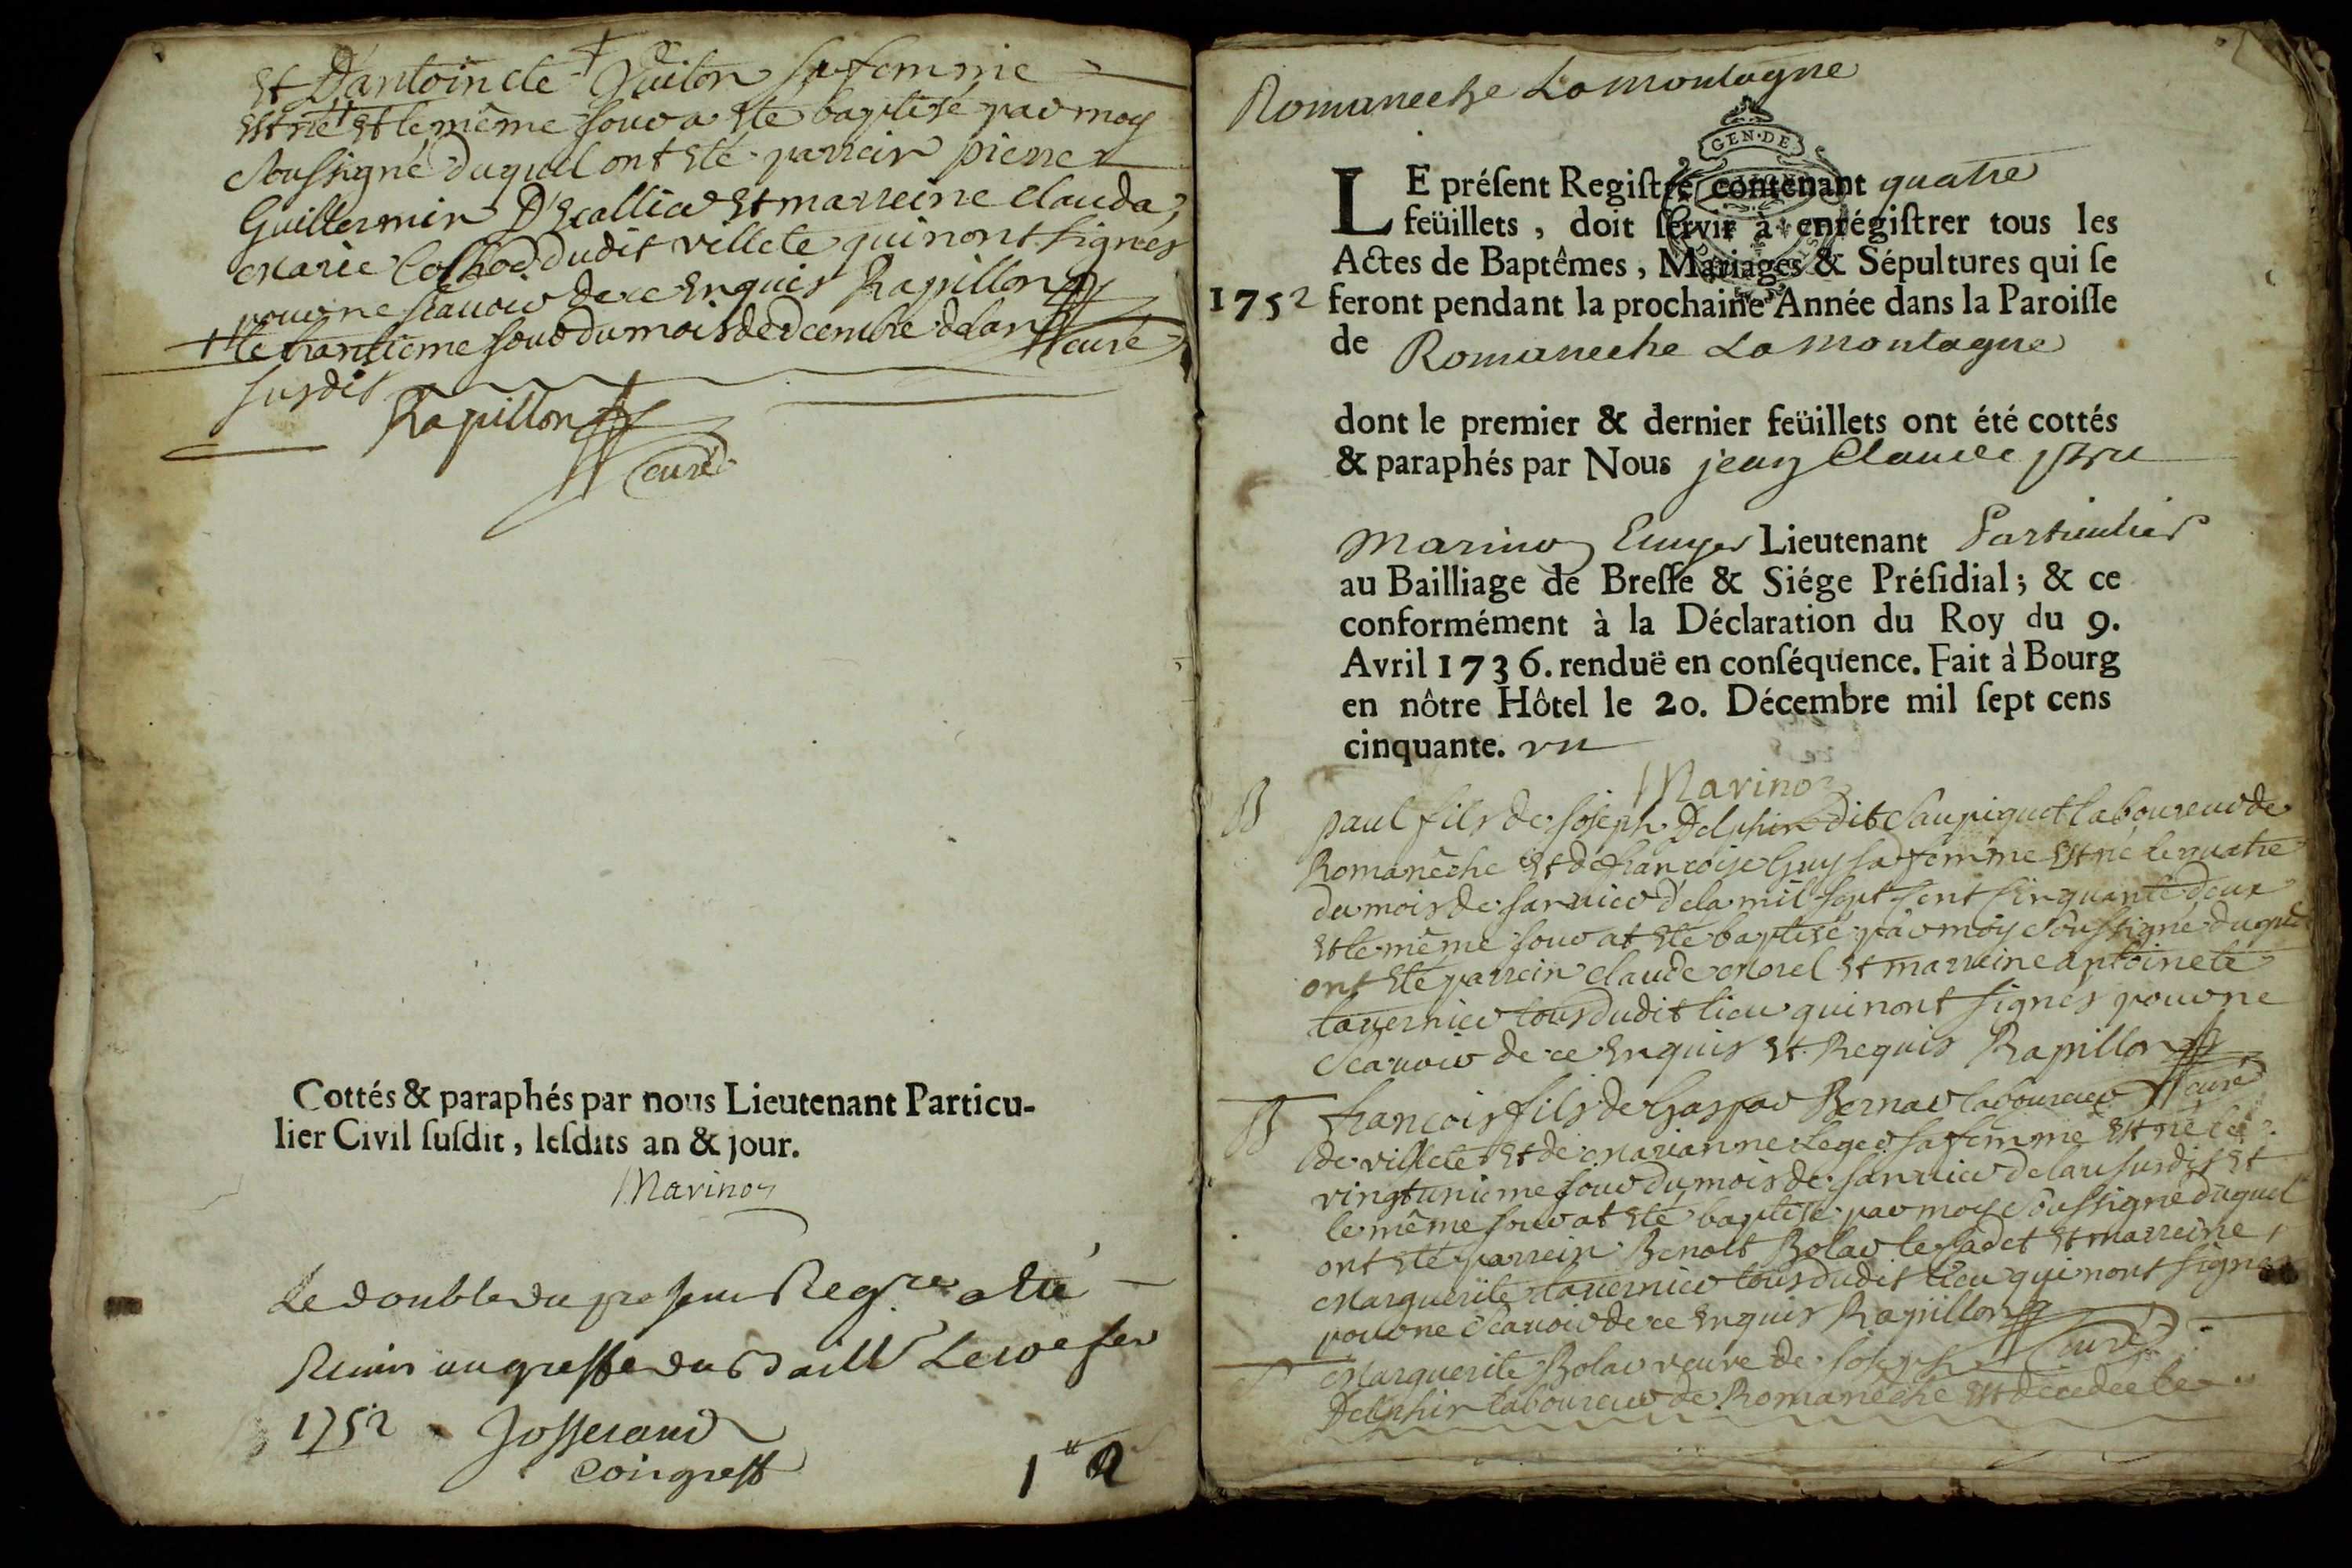 Et D'antoinete + Guiton sa femme
est né et le même jour a ete baptisé par moy
Soussigné duquel ont ete parrein pierre
Guillermin D'Ecallier et marreine Clauda,
Marie Cochod dudit villete qui n'ont signés
pour ne scavoir de ce enquis Rapillon
curé
+ le trantieme jour du mois de decembre de lan
susdit
Rapillon
curé
Cottés & paraphés par nous Lieutenant Particu-
lier Civil ſuſdit, leſdits an & jour.
Marinon
Le double du present Reg.re a été
Remis au greffe du Baill.
1752 Josserand
1 2
Romaneche La montagne
GEN·DE
LE préſent Regiſtre contenant quatre
feüillets, doit ſervir à enrégiſtrer tous les
Actes de Baptêmes, Mariages & Sépultures qui ſe
1752 feront pendant la prochaine Année dans la Paroiſſe
de Romaneche La montagne
dont le premier & dernier feüillets ont été cottés
& paraphés par Nous jean Claude
Marinon Ecuyer Lieutenant Particulier
au Bailliage de Breſſe & Siége Préſidial; & ce
conformément à la Déclaration du Roy du 9.
Avril 1736. renduë en conſéquence. Fait à Bourg
en nôtre Hôtel le 20. Décembre mil ſept cens
cinquante. un
Marinon
B paul fils de joseph Delphin dit Saupiquet laboureur de
Romanêche et de francoise Guy sa femme est né le quatre
du mois de janvier de la mil sept cent cinquante deux
et le même jour at ete baptisé par moy Soussigné duquel
ont ete parrein Claude Morel et marreine antoinete
tavernier tous dudit lieu qui n'ont signés pour ne
Scavoir de ce enquis et Requis Rapillon
curé
B francois fils de Gaspar Bernar laboureur
de villete et de Marianne Leger sa femme est né le
vingt unieme jour du mois de janvier de lan susdit et
le même jour at ete baptisé par moy Soussigné duquel
ont ete parrein Benoit Bolar le Cadet et marreine
Marguerite tavernier tous dudit lieu qui n'ont signés
pour ne Scavoir de ce enquis Rapillon
Curé
Marguerite Bolar veuve de joseph
Delphin laboureur de Romanêche est decedee le